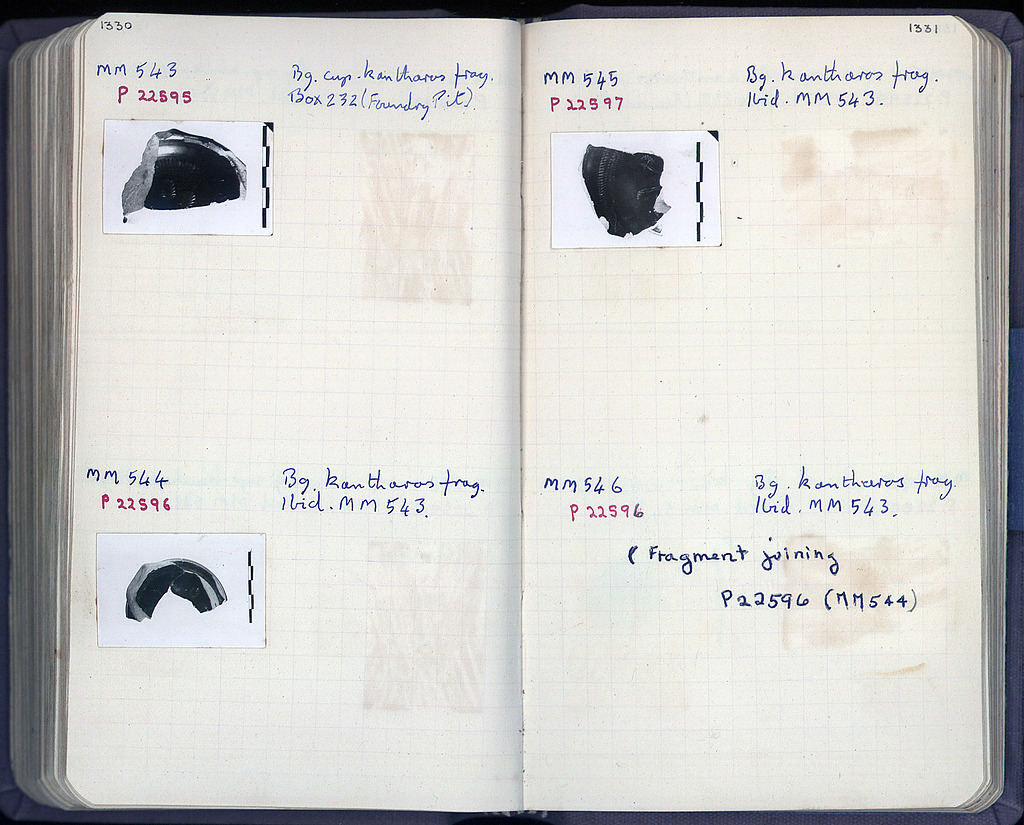 1330
MM 543
P 22595
Bg. cup-kantharos frag.
Box 232 (Foundry Pit).
MM 544
P 22596
Bg. kantharos frag.
Ibid. MM 543.
1331
MM 545
P 22597
Bg. kantharos frag.
Ibid. MM 543.
MM 546
P 22596
Bg. kantharos frag.
Ibid. MM 543.
( Fragment joining
P 22596 (MM 544)